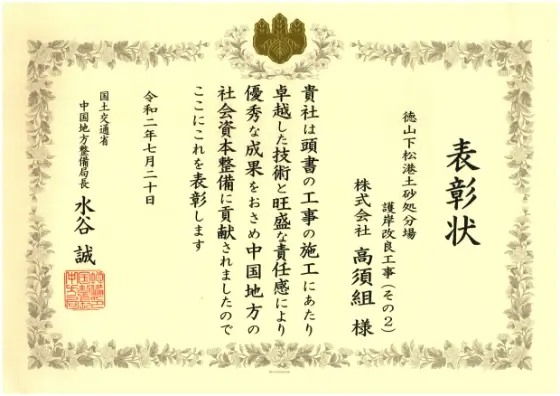 表彰状
徳山下松港土砂処分場
護岸改良工事(その2)
株式会社 高須組 様
貴社は頭書の工事の施工にあたり
卓越した技術と旺盛な責任感により
優秀な成果をおさめ中国地方の
社会資本整備に貢献されましたので
ここにこれを表彰します
令和二年七月二十日
国土交通省
中国地方整備局長 水谷 誠